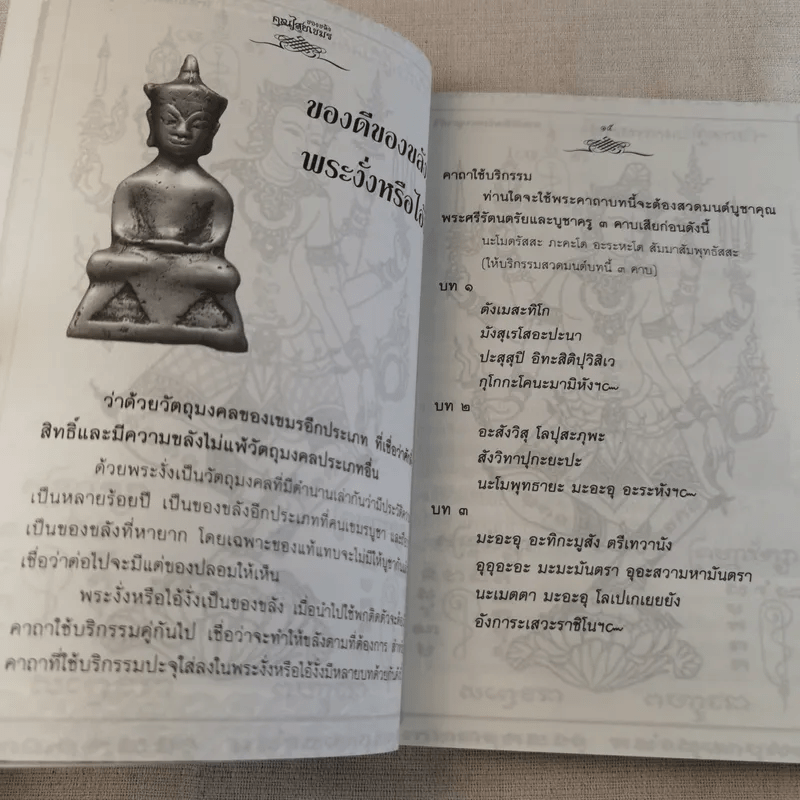 ของขลัง
คุณไสยเขมร
ของดีของขลัง
พระงั่งหรือไอ้
ว่าด้วยวัตถุมงคลของเขมรอีกประเภท ที่เชื่อว่า
สิทธิ์และมีความขลังไม่แพ้วัตถุมงคลประเภทอื่น
ด้วยพระงั่งเป็นวัตถุมงคลที่มีตำนานเล่ากันว่ามีประวัติ
เป็นหลายร้อยปี เป็นของขลังอีกประเภทที่คนเขมรบูชา
เป็นของขลังที่หายาก โดยเฉพาะของแท้แทบจะไม่มีให้บูชากัน
เชื่อว่าต่อไปจะมีแต่ของปลอมให้เห็น
พระงั่งหรือไอ้งั่งเป็นของขลัง เมื่อนำไปใช้พกติดตัวจะต้อง
คาถาใช้บริกรรมคู่กันไป เชื่อว่าจะทำให้ขลังตามที่ต้องการ
คาถาที่ใช้บริกรรมปะจุใส่ลงในพระงั่งหรือไอ้งั่งมีหลายบทด้วยกัน
๑๕
คาถาใช้บริกรรม
ท่านใดจะใช้พระคาถาบทนี้จะต้องสวดมนต์บูชาคุณ
พระศรีรัตนตรัยและบูชาครู ๓ คาบเสียก่อนดังนี้
นะโมตรัสสะ ภะคะโต อะระหะโต สัมมาสัมพุทธัสสะ
(ให้บริกรรมสวดมนต์บทนี้ ๓ คาบ)
บท ๑
ตังเมสะทิโก
มังสุเรโสอะปะนา
ปะสุสุปี อิทะสิติปุวิสิเว
กุโกกะโคนะมามิหังฯ๛
บท ๒
อะสังวิสุ โลปุสะภุพะ
สังวิทาปุกะยะปะ
นะโมพุทธายะ มะอะอุ อะระหังฯ๛
บท ๓
มะอะอุ อะทิกะมูสัง ตรีเทวานัง
อุอุอะอะ มะมะมันตรา อุอะสวามหามันตรา
นะเมตตา มะอะอุ โลเปเกเยยยัง
อังการะเสวะราชิโนฯ๛